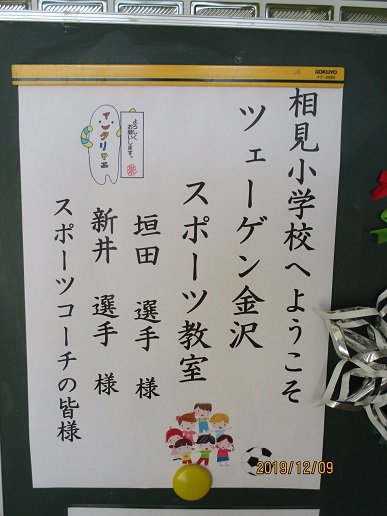 相見小学校へようこそ
ツェーゲン金沢
スポーツ教室
垣田 選手 様
新井 選手 様
スポーツコーチの皆様
アタリマエ
よろしく
お願いします。
KOKUYO
2019/12/09